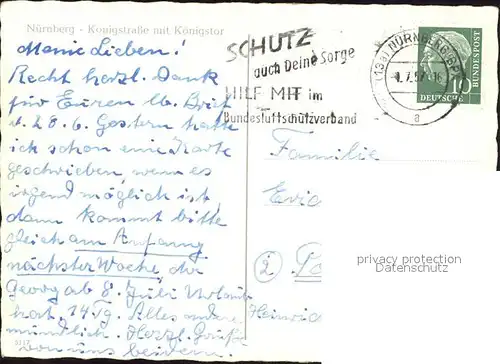 Nürnberg - Königstraße mit Königstor
Meine Lieben!
Recht herzl. Dank
für Euren lb. Brief
v. 28.6. Gestern hatte
ich schon eine Karte
geschrieben, wenn es
irgend möglich ist,
dann kommt bitte
gleich am Anfang
nächster Woche, da
Georg ab 8. Juli Urlaub
hat. 14 Tg. Alles andere
mündlich. Herzl. Grüße
von uns beiden.
SCHUTZ
auch Deine Sorge
HILF MIT im
Bundesluftschutzverband
(13a) NÜRNBERG
a
10
DEUTSCHE
BUNDESPOST
Familie
Heinrich
privacy protection
Datenschutz